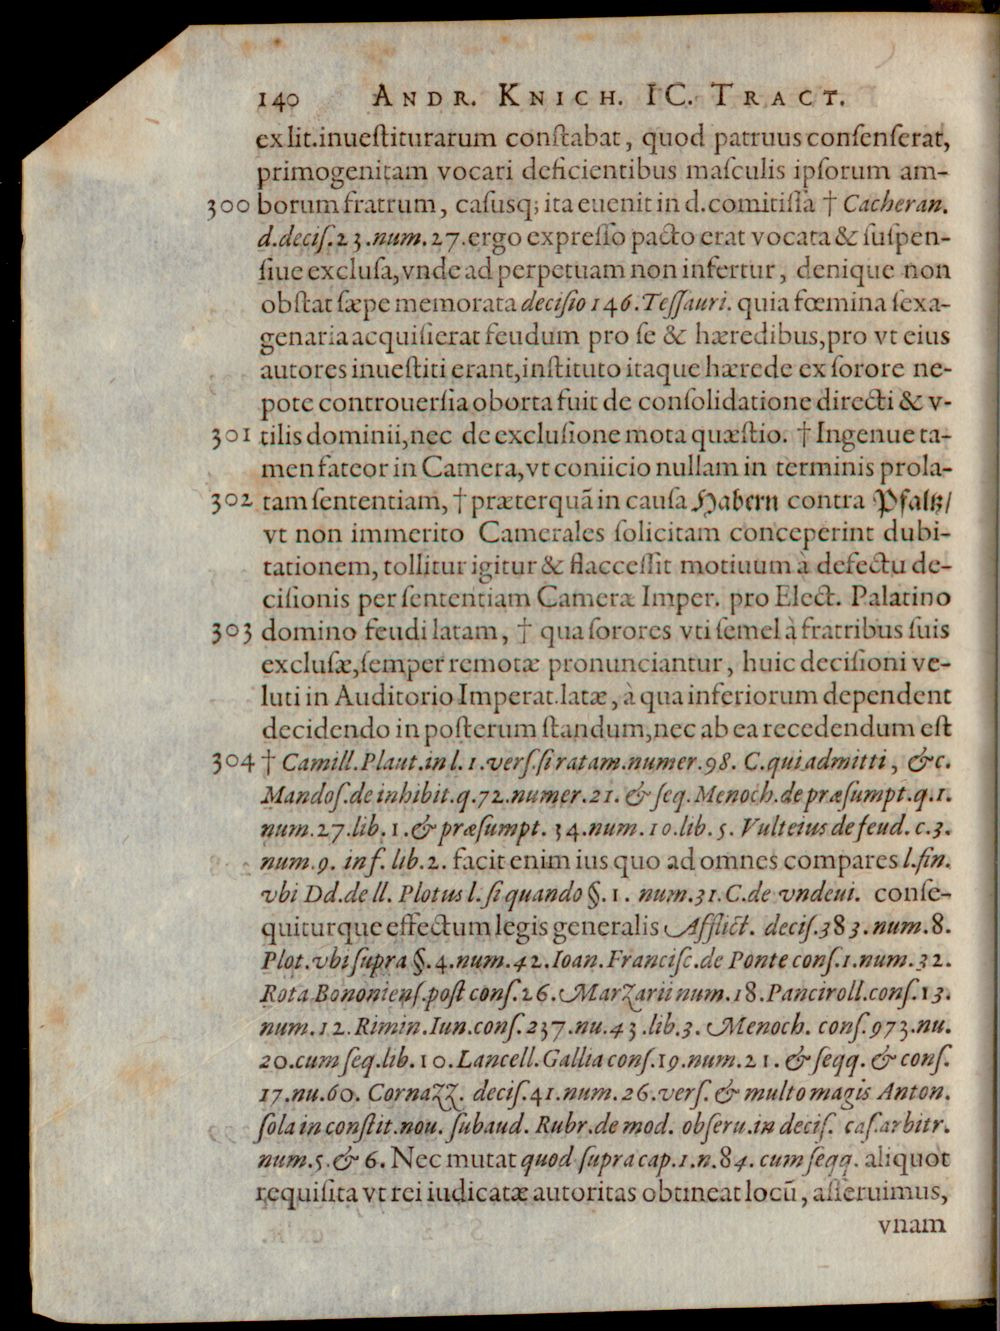 140 ANDR. KNICH. IC. TRACT.
ex lit. inuestiturarum constabat, quod patruus consenserat,
primogenitam vocari deficientibus masculis ipsorum am-
300 borum fratrum, casusq; ita euenit in d. comitissa † Cacheran.
d. decis. 23. num. 27. ergo expresso pacto erat vocata & suspen-
siue exclusa, vnde ad perpetuam non infertur, denique non
obstat sæpe memorata decisio 146. Tessauri. quia fœmina sexa-
genaria acquisierat feudum pro se & hæredibus, pro vt eius
autores inuestiti erant, instituto itaque hærede ex sorore ne-
pote controuersia oborta fuit de consolidatione directi & v-
301 tilis dominii, nec de exclusione mota quæstio. † Ingenue ta-
men fateor in Camera, vt coniicio nullam in terminis prola-
302 tam sententiam, † præterquã in causa Habern contra Pfaltz/
vt non immerito Camerales solicitam conceperint dubi-
tationem, tollitur igitur & flaccessit motiuum à defectu de-
cisionis per sententiam Cameræ Imper. pro Elect. Palatino
303 domino feudi latam, † qua sorores vti semel à fratribus suis
exclusæ, semper remotæ pronunciantur, huic decisioni ve-
luti in Auditorio Imperat. latæ, à qua inferiorum dependent
decidendo in posterum standum, nec ab ea recedendum est
304 † Camill. Plaut. in l. 1. vers. si ratam. numer. 98. C. qui admitti, &c.
Mandos. de inhibit. q. 72. numer. 21. & seq. Menoch. de præsumpt. q. 1.
num. 27. lib. 1. & præsumpt. 34. num. 10. lib. 5. Vulteius de feud. c. 3.
num. 9. inf. lib. 2. facit enim ius quo ad omnes compares l. fin.
vbi Dd. de ll. Plotus l. si quando §. 1. num. 31. C. de vndeui. conse-
quiturque effectum legis generalis Afflict. decis. 383. num. 8.
Plot. vbi supra §. 4. num. 42. Ioan. Francisc. de Ponte cons. 1. num. 32.
Rota Bononiens. post cons. 26. Marzarii num. 18. Panciroll. cons. 13.
num. 12. Rimin. Iun. cons. 237. nu. 43. lib. 3. Menoch. cons. 973. nu.
20. cum seq. lib. 10. Lancell. Gallia cons. 19. num. 21. & seqq. & cons.
17. nu. 60. Cornazz. decis. 41. num. 26. vers. & multo magis Anton.
sola in constit. nou. subaud. Rubr. de mod. obseru. in decis. cas. arbitr.
num. 5. & 6. Nec mutat quod supra cap. 1. n. 84. cum seqq. aliquot
requisita vt rei iudicatæ autoritas obtineat locũ, asseruimus,
vnam